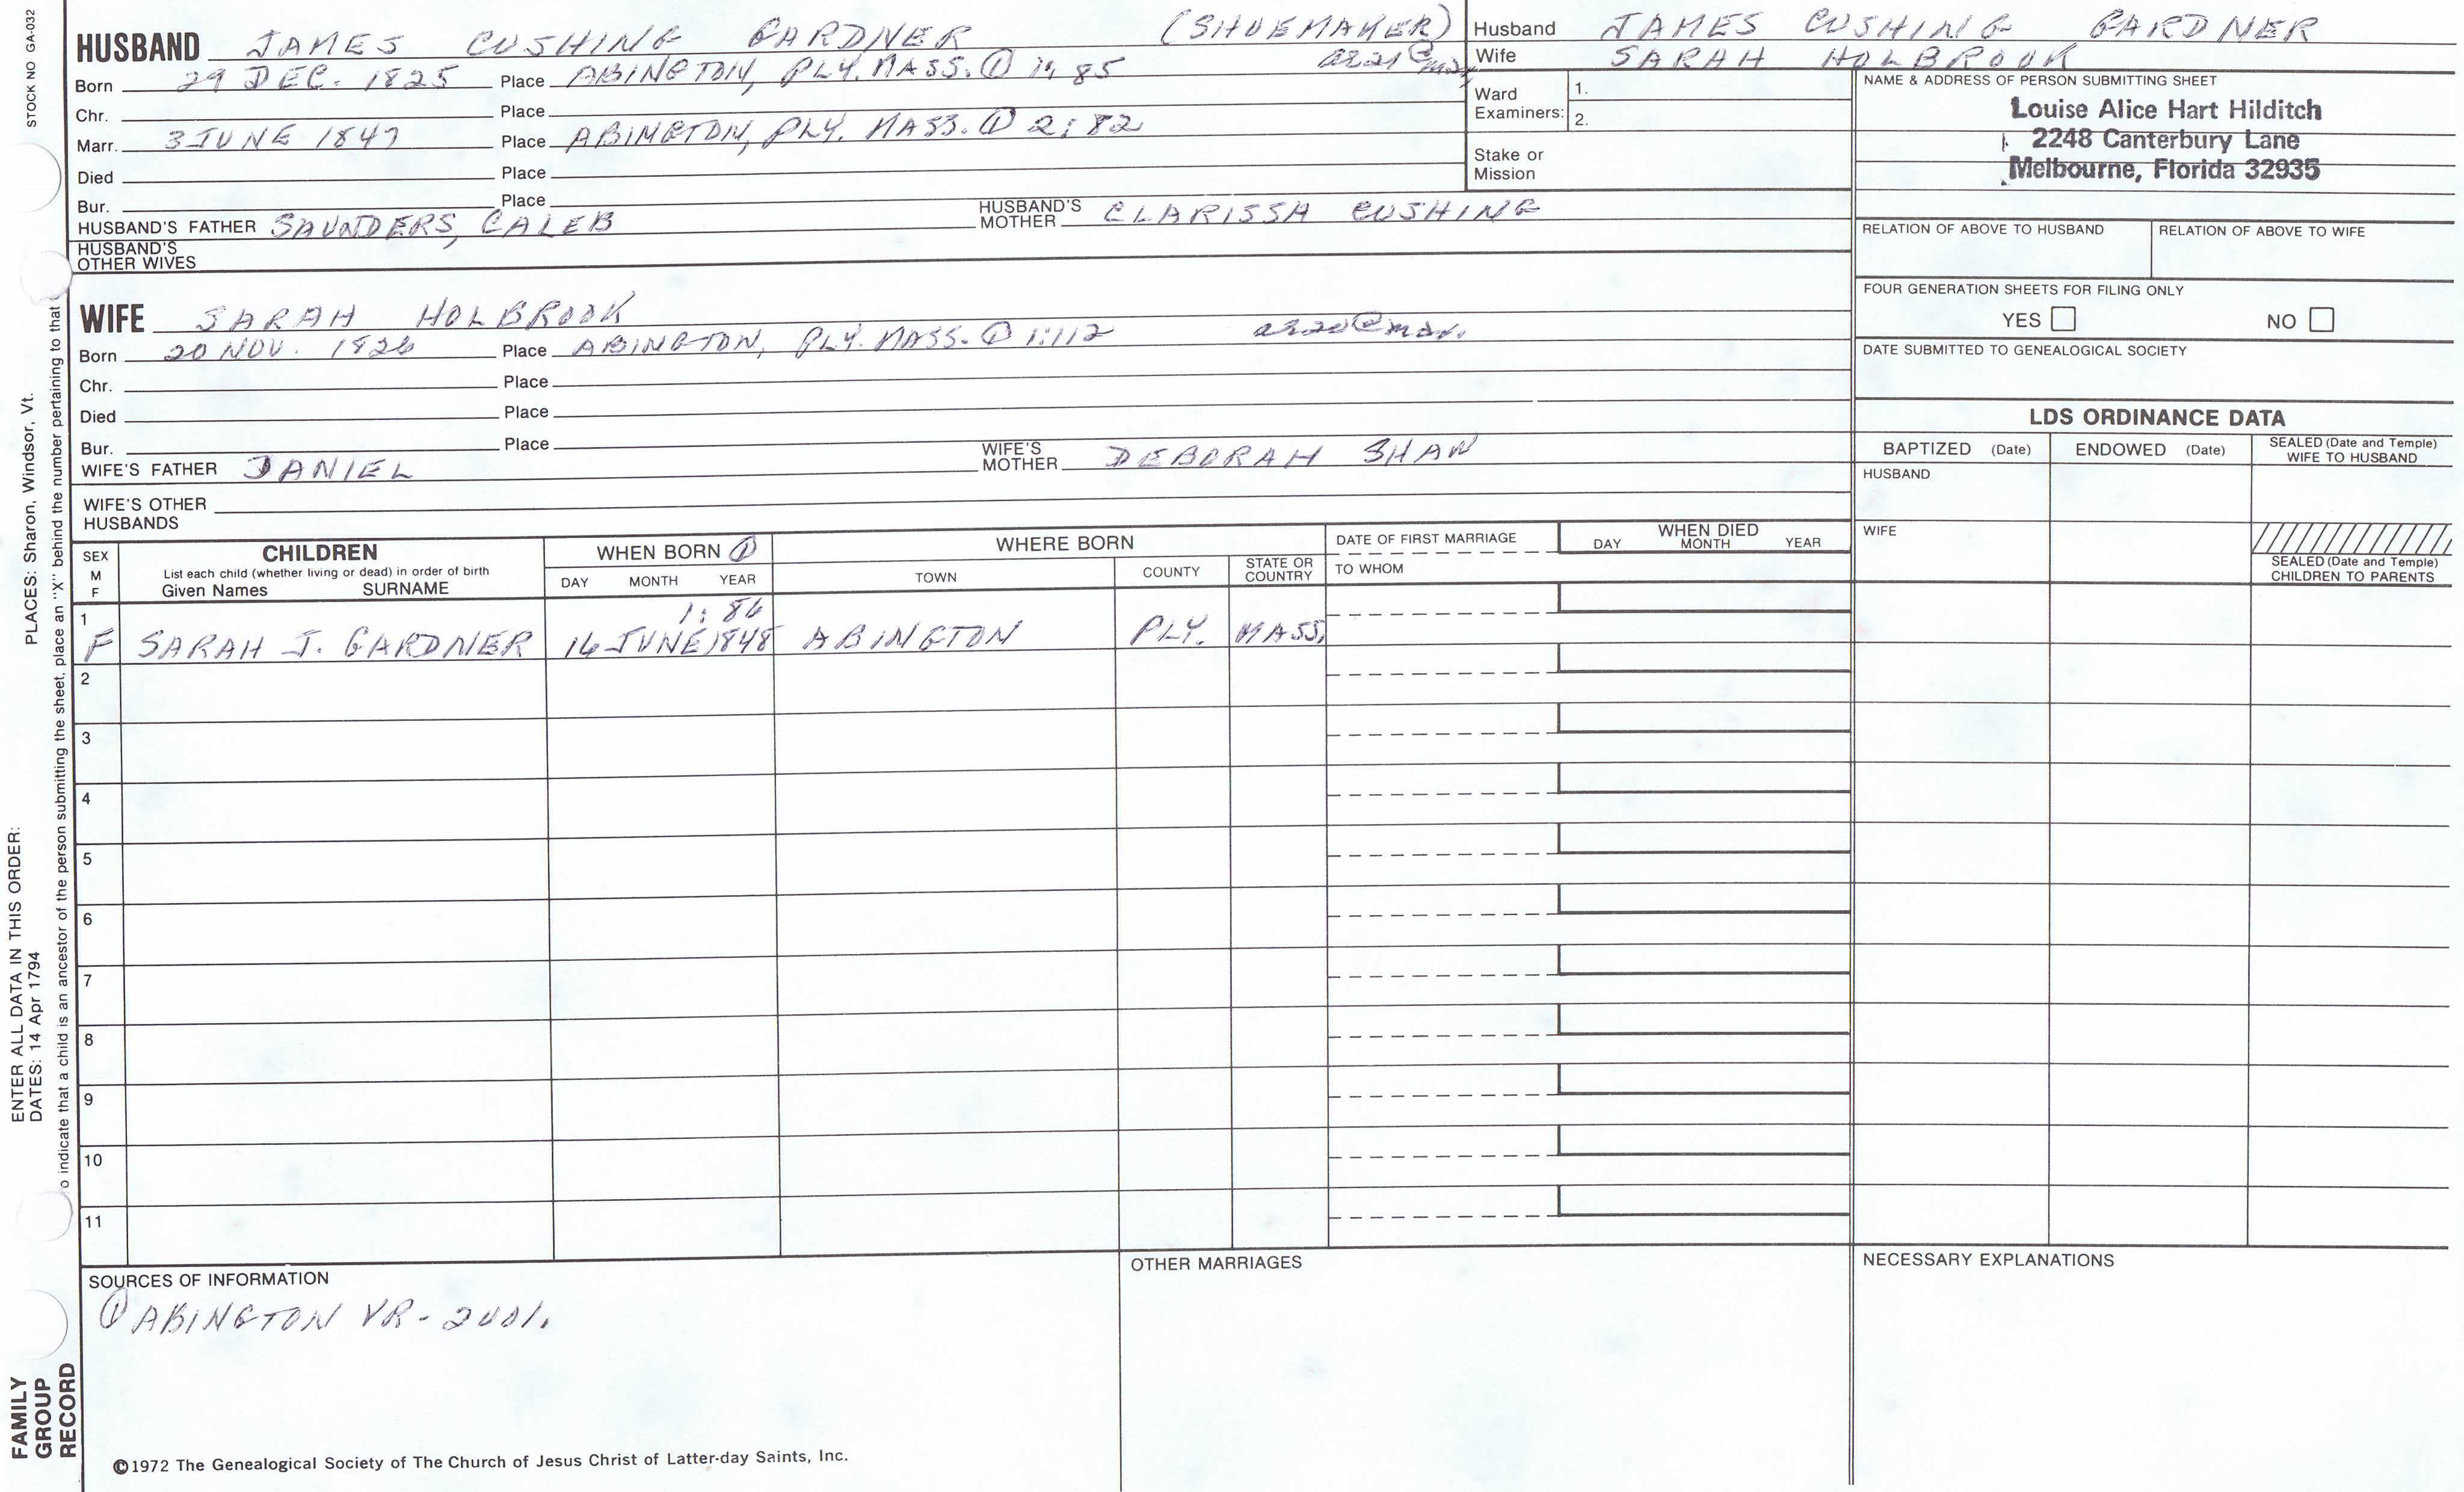 STOCK NO GA-032
HUSBAND JAMES CUSHING GARDNER (SHUEMAKER)
Born 29 DEC. 1825 Place ABINGTON, PLY. MASS. ① 1: 85 ae 21 @ mar
Chr. Place
Marr. 3 JUNE 1847 Place ABINGTON, PLY. MASS. ① 2: 82
Died Place
Bur. Place
HUSBAND'S FATHER SAUNDERS, CALEB HUSBAND'S MOTHER CLARISSA CUSHING
HUSBAND'S OTHER WIVES
WIFE SARAH HOLBROOK
Born 20 NOV. 1826 Place ABINGTON, PLY. MASS. ① 1:112 ae 20 @ mar.
Chr. Place
Died Place
Bur. Place
WIFE'S FATHER DANIEL WIFE'S MOTHER DEBORAH SHAW
WIFE'S OTHER HUSBANDS
Husband JAMES CUSHING GARDNER
Wife SARAH HOLBROOK
Ward Examiners: 1.
2.
Stake or Mission
NAME & ADDRESS OF PERSON SUBMITTING SHEET
Louise Alice Hart Hilditch
2248 Canterbury Lane
Melbourne, Florida 32935
RELATION OF ABOVE TO HUSBAND RELATION OF ABOVE TO WIFE
FOUR GENERATION SHEETS FOR FILING ONLY
YES NO
DATE SUBMITTED TO GENEALOGICAL SOCIETY
LDS ORDINANCE DATA
BAPTIZED (Date) ENDOWED (Date) SEALED (Date and Temple) WIFE TO HUSBAND
HUSBAND
WIFE
SEALED (Date and Temple) CHILDREN TO PARENTS
SEX M F CHILDREN WHEN BORN ① WHERE BORN DATE OF FIRST MARRIAGE WHEN DIED
List each child (whether living or dead) in order of birth
Given Names SURNAME DAY MONTH YEAR TOWN COUNTY STATE OR COUNTRY TO WHOM DAY MONTH YEAR
1 1: 86
F SARAH J. GARDNER 14 JUNE 1848 ABINGTON PLY. MASS.
2
3
4
5
6
7
8
9
10
11
SOURCES OF INFORMATION
① ABINGTON VR - 2001.
OTHER MARRIAGES
NECESSARY EXPLANATIONS
©1972 The Genealogical Society of The Church of Jesus Christ of Latter-day Saints, Inc.
FAMILY GROUP RECORD
ENTER ALL DATA IN THIS ORDER:
DATES: 14 Apr 1794 PLACES: Sharon, Windsor, Vt.
o indicate that a child is an ancestor of the person submitting the sheet, place an "X" behind the number pertaining to that